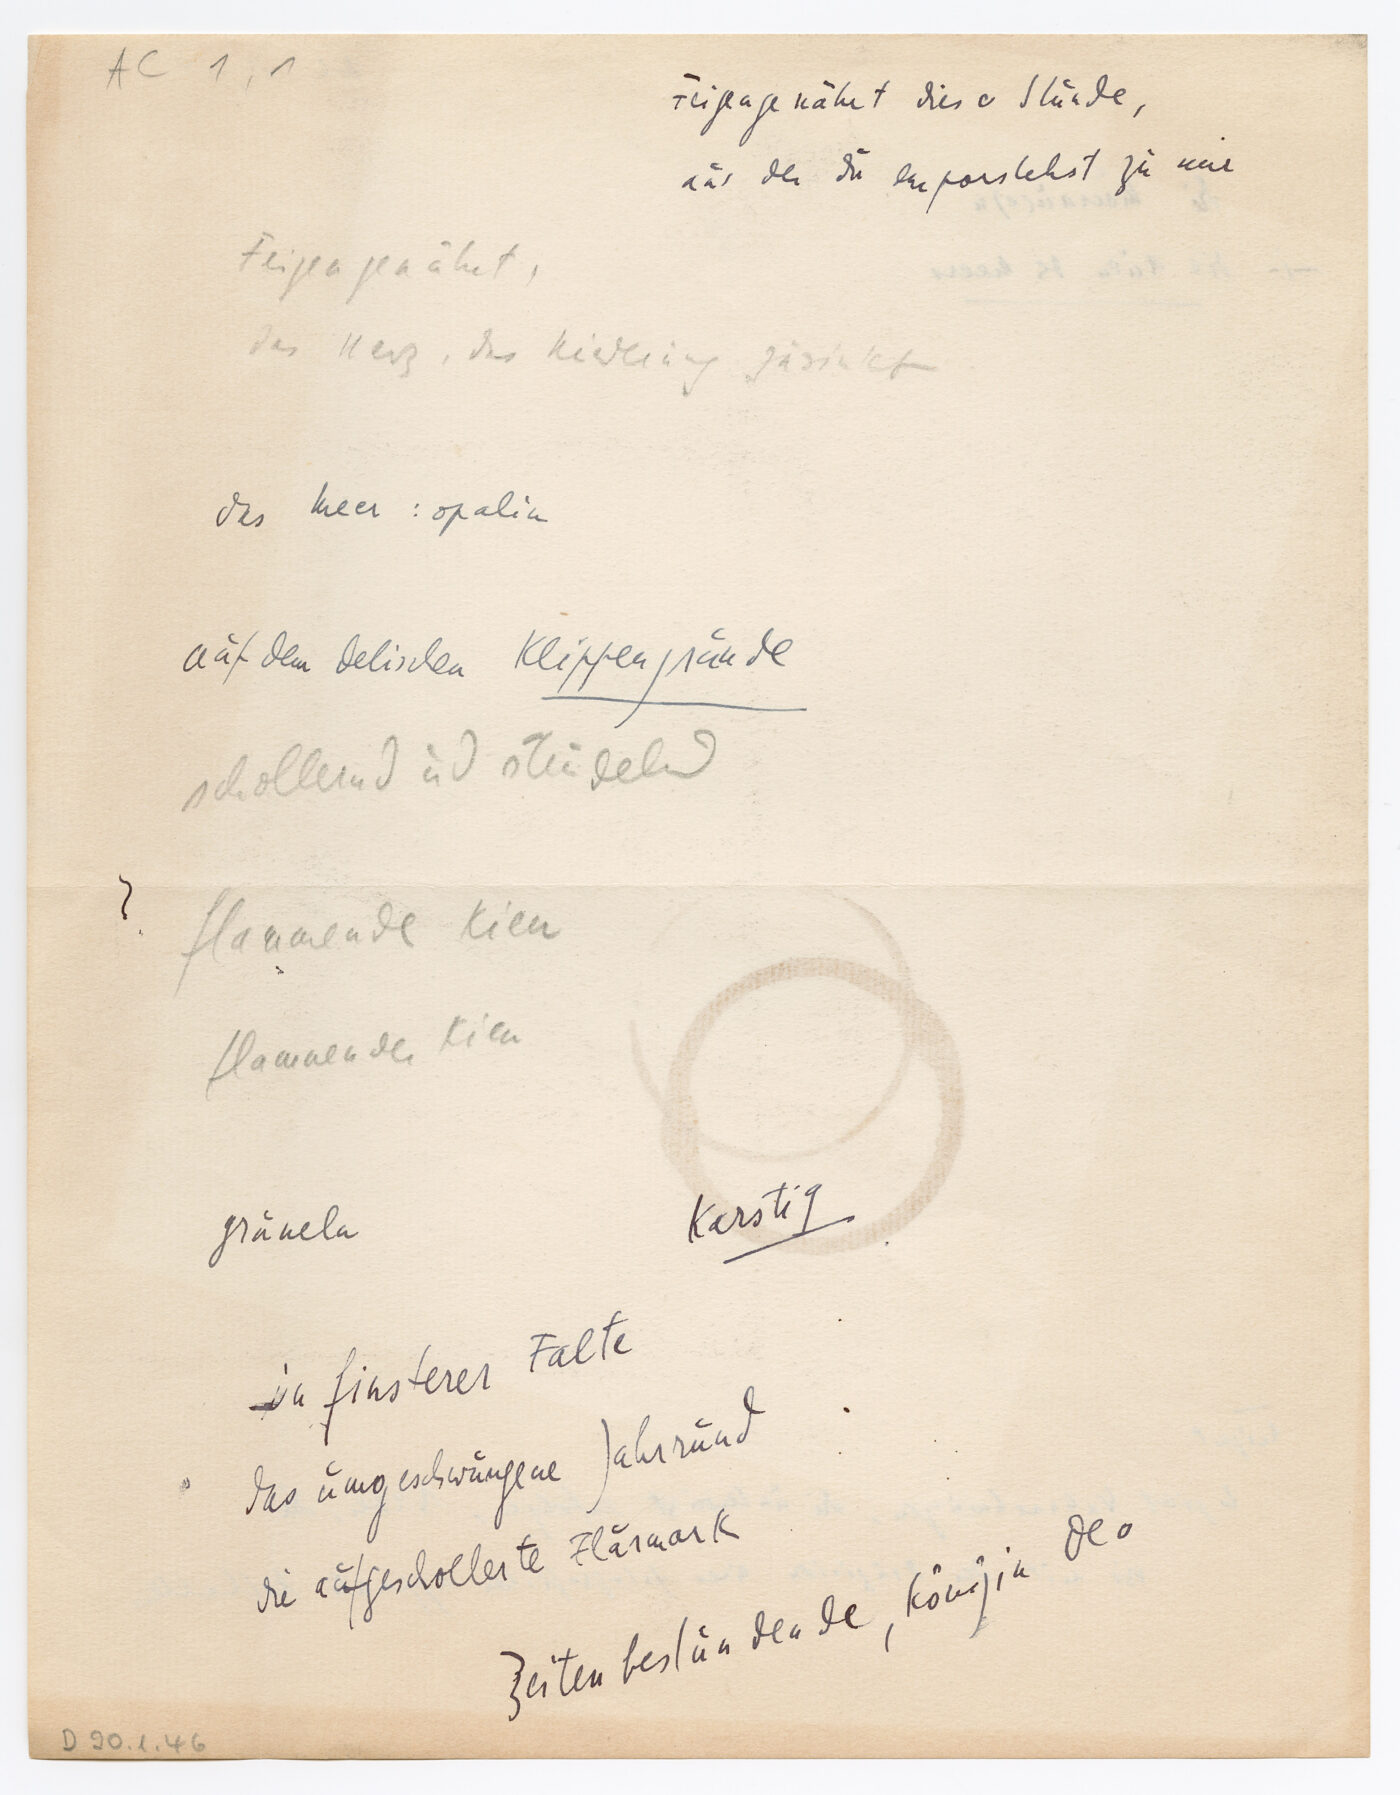 AC 1,1
Feigengenährt diese Stunde,
aus der du emporstehst zu mir
Feigengenährt,
das Herz, das
das Meer : opalin
auf dem delischen Klippengrunde
schollernd und strudelnd
? flammende Kien
flammender Kien
gräueln Karstig
in finsterer Falte
das umgeschwungene Jahrrund
die aufgeschollerte Flurmark
Zeitenbestundende, Königin der
D 90.1.46